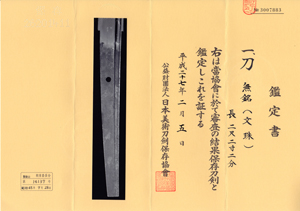 № 3007883
鑑定書
一、刀 無銘(文珠)
長 二尺二寸二分
右は當協會に於て審査の結果保存刀剣と
鑑定しこれを証する
平成二十七年二月五日
公益財団法人 日本美術刀剣保存協會